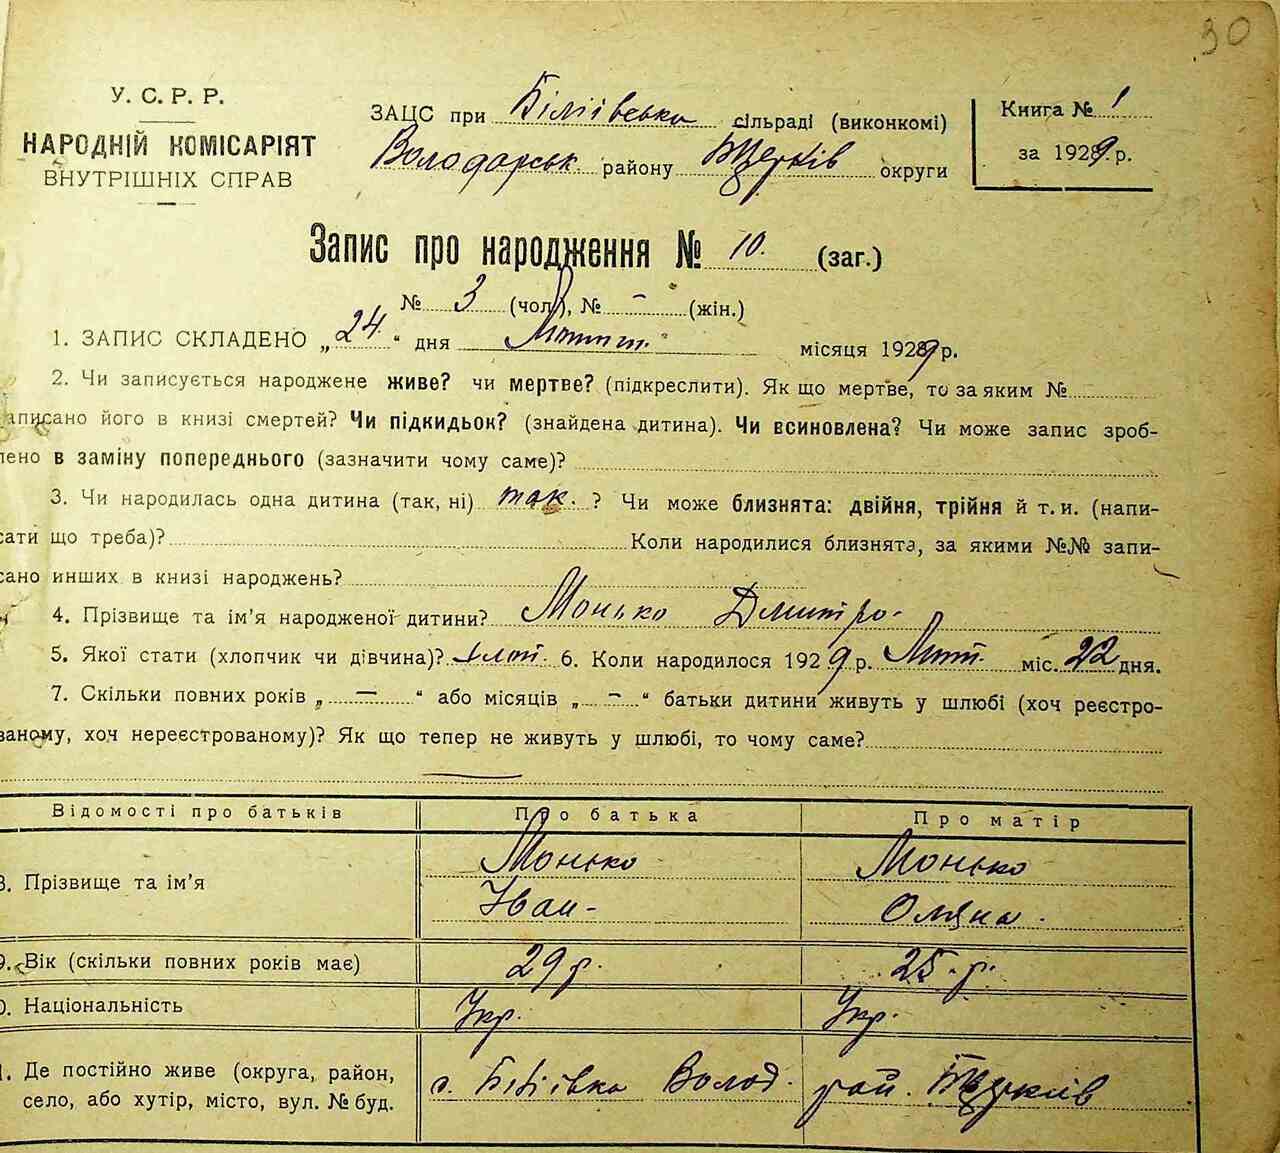 30
У. С. Р. Р.
НАРОДНІЙ КОМІСАРІЯТ
ВНУТРІШНІХ СПРАВ
ЗАЦС при Біліївська сільраді (виконкомі)
Володарськ. району округи
Книга № 1
за 1929 р.
Запис про народження № 10. (заг.)
№ 3 (чол.), № – (жін.)
1. ЗАПИС СКЛАДЕНО „24“ дня місяця 1929 р.
2. Чи записується народжене живе? чи мертве? (підкреслити). Як що мертве, то за яким №
аписано його в книзі смертей? Чи підкидьок? (знайдена дитина). Чи всиновлена? Чи може запис зроб-
лено в заміну попереднього (зазначити чому саме)?
3. Чи народилась одна дитина (так, ні) так. ? Чи може близнята: двійня, трійня й т. и. (напи-
сати що треба)? Коли народилися близнята, за якими №№ запи-
сано инших в книзі народжень?
4. Прізвище та ім'я народженої дитини? Монько Дмитро.
5. Якої стати (хлопчик чи дівчина)? 6. Коли народилося 1929 р. Лют. міс. 22 дня.
7. Скільки повних років „ – “ або місяців „ – “ батьки дитини живуть у шлюбі (хоч реєстро-
ваному, хоч нереєстрованому)? Як що тепер не живуть у шлюбі, то чому саме?
Відомості про батьків Про батька Про матір
8. Прізвище та ім'я Монько Монько
Іван - Оляна.
9. Вік (скільки повних років має) 29 р. 25. р.
0. Національність Укр. Укр.
1. Де постійно живе (округа, район, с. Біліївка Волод. рай.
село, або хутір, місто, вул. № буд.